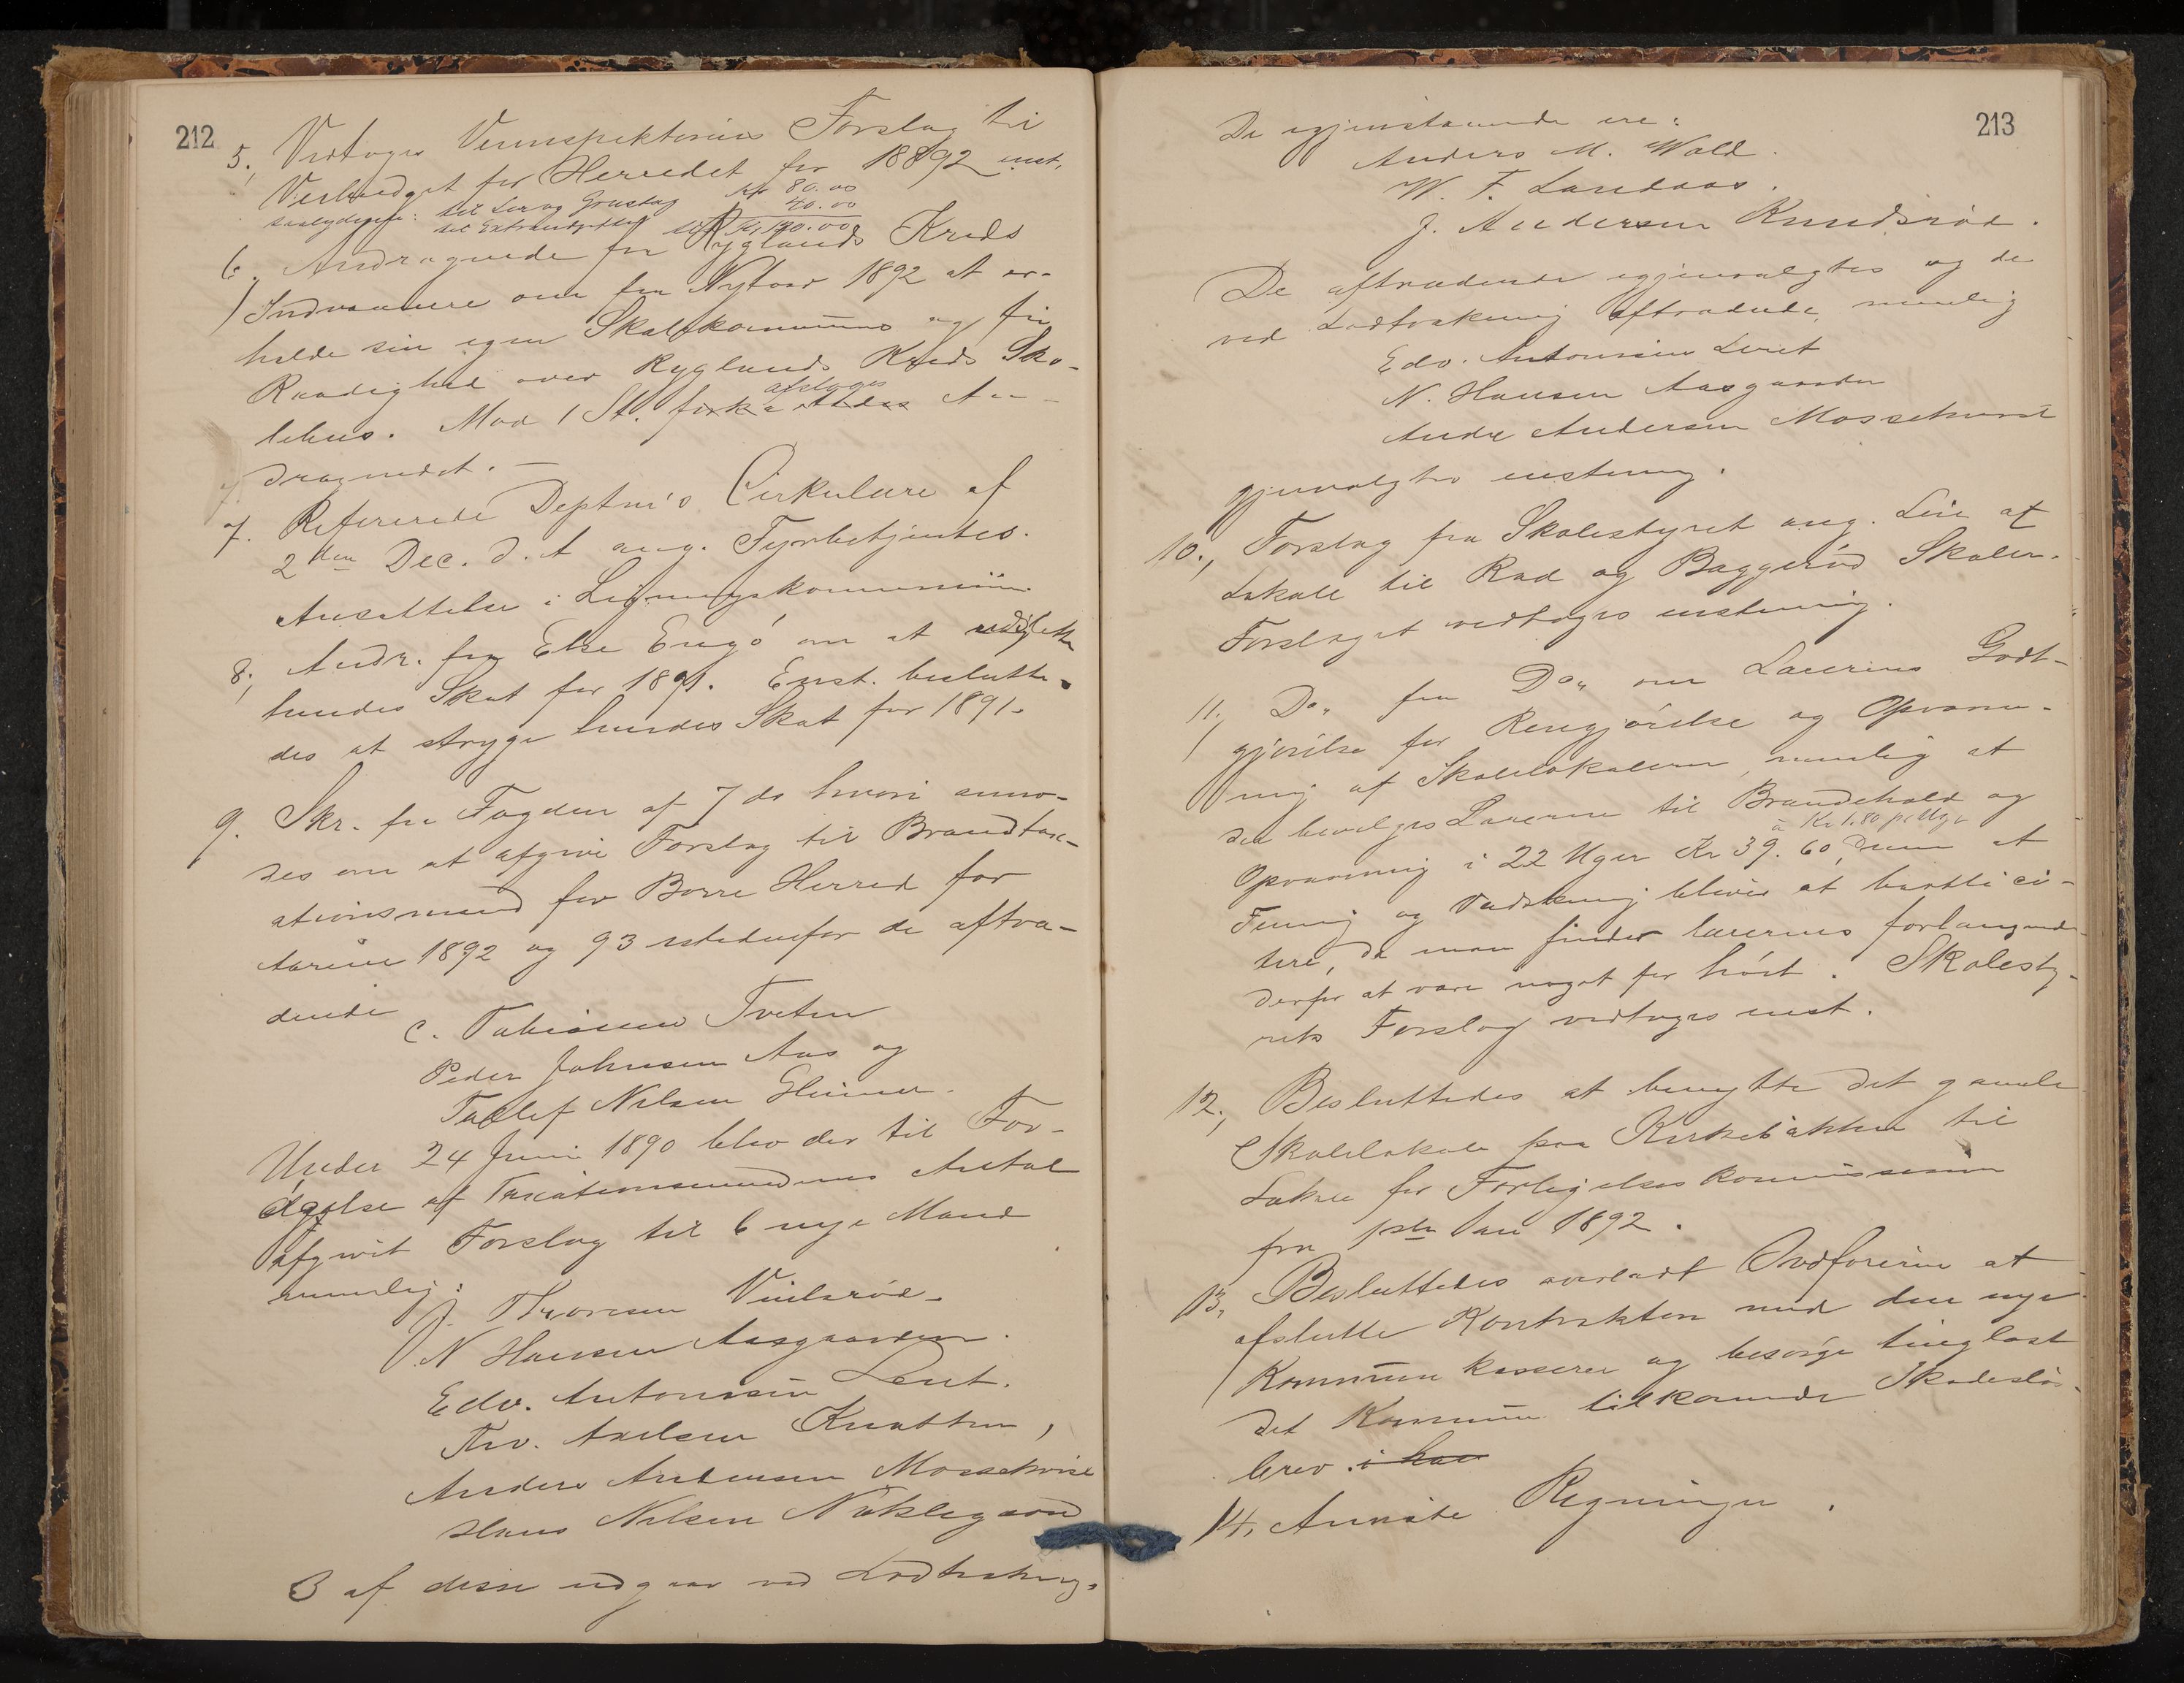 212
5., Vedtoges Veiinspektørens Forslag til
Veibudget for Herredet for 1892 enst.
saalydende: til Ler og Grustag Kr 80.00
til Extraudgifter 40.00
til Kr. 120.00
6., Andragende fra Ryglands Kreds
Indvaanere om fra Nytaar 1892 at er-
holde sin egen Skolekommune og fri
Raadighed over Ryglands Kreds Sko-
lehus. Mod 1 St. afsloges An-
dragendet. —
7. Refererede Deptm's Cirkulære af
2den Dec. d. A ang. Fyrbetjentes
Ansættelse i Ligningskommission.
8., Andr. fra Else Engø om at
hendes Skat for 1891. Enst. beslutte-
des at stryge hendes Skat for 1891.
9. Skr. fra Fogden af 7 ds hvori anmo-
des om at afgive Forslag til Brandtax-
ationsmænd for Borre Herred for
Aarene 1892 og 93 istedenfor de aftræ-
dende
C. Tobiassen Tveten
Peder Johnsen Aas og
Tollef Nilsen
Under 24 Juni 1890 blev der til For-
øgelse af Taxationsmændenes Antal
afgivet Forslag til 6 nye Mænd
nemlig:
J. Thoresen
N Hansen Aasgaarden.
Edv. Antonisen Leret.
Thv. Axelsen Knatten,
Anders Andersen Massekvist
Hans Nilsen Nøklegaard
3 af disse udgaar ved Lodtrækning.
213
De igjenstaaende ere:
Anders M. Wold.
W. F. Landaas.
J. Andersen Knudsrød.
De aftrædende igjenvalgtes og de
ved Lodtrækning aftrædende, nemlig
Edv. Antonisen Leret
N. Hansen Aasgaarden
Andr Andersen Massekvist
gjenvalgtes enstemig.
10., Forslag fra Skolestyret ang. Leie af
Lokale til Rød og Baggerød Skoler.
Forslaget vedtoges enstemig.
11., Do. fra Do. om Lærernes Godt-
gjørelse for Rengjørelse og Opvarm-
ning af Skolelokalerne, nemlig at
der bevilges Lærerne til Brændehold og
à Kr 1.80 pr Uge
Opvarmning i 22 Uger Kr 39.60, at
Feining og Vadskning bliver at bortlici-
tere, da man finder lærernes forlangende
derfor at være noget for høit. Skolesty-
rets Forslag vedtoges enst.
12., Besluttedes at benytte det gamle
Skolelokale paa Kirkebakken til
Lokale for Forligelseskommissionen
fra 1ste Jan 1892.
13, Besluttedes overladt Ordføreren at
afslutte Kontrakten med den nye
Kommunekasserer og besørge tinglæst
det Kommunen tilkommende Skadesløs-
brev.
14, Anviste Regninger.